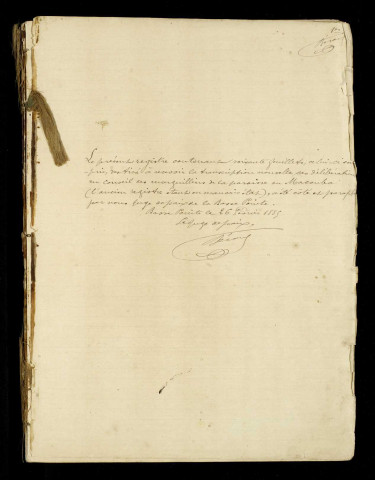 Le présent registre contenant soixante feuillets,
destiné à la transcription nouvelle des délibérations
du conseil des marguilliers de la paroisse du Macouba
(l'ancien registre étant en mauvais état), a été coté et paraphé
par nous juge de paix de la Basse Pointe.
Basse Pointe le 26 février 1885
Le Juge de paix,